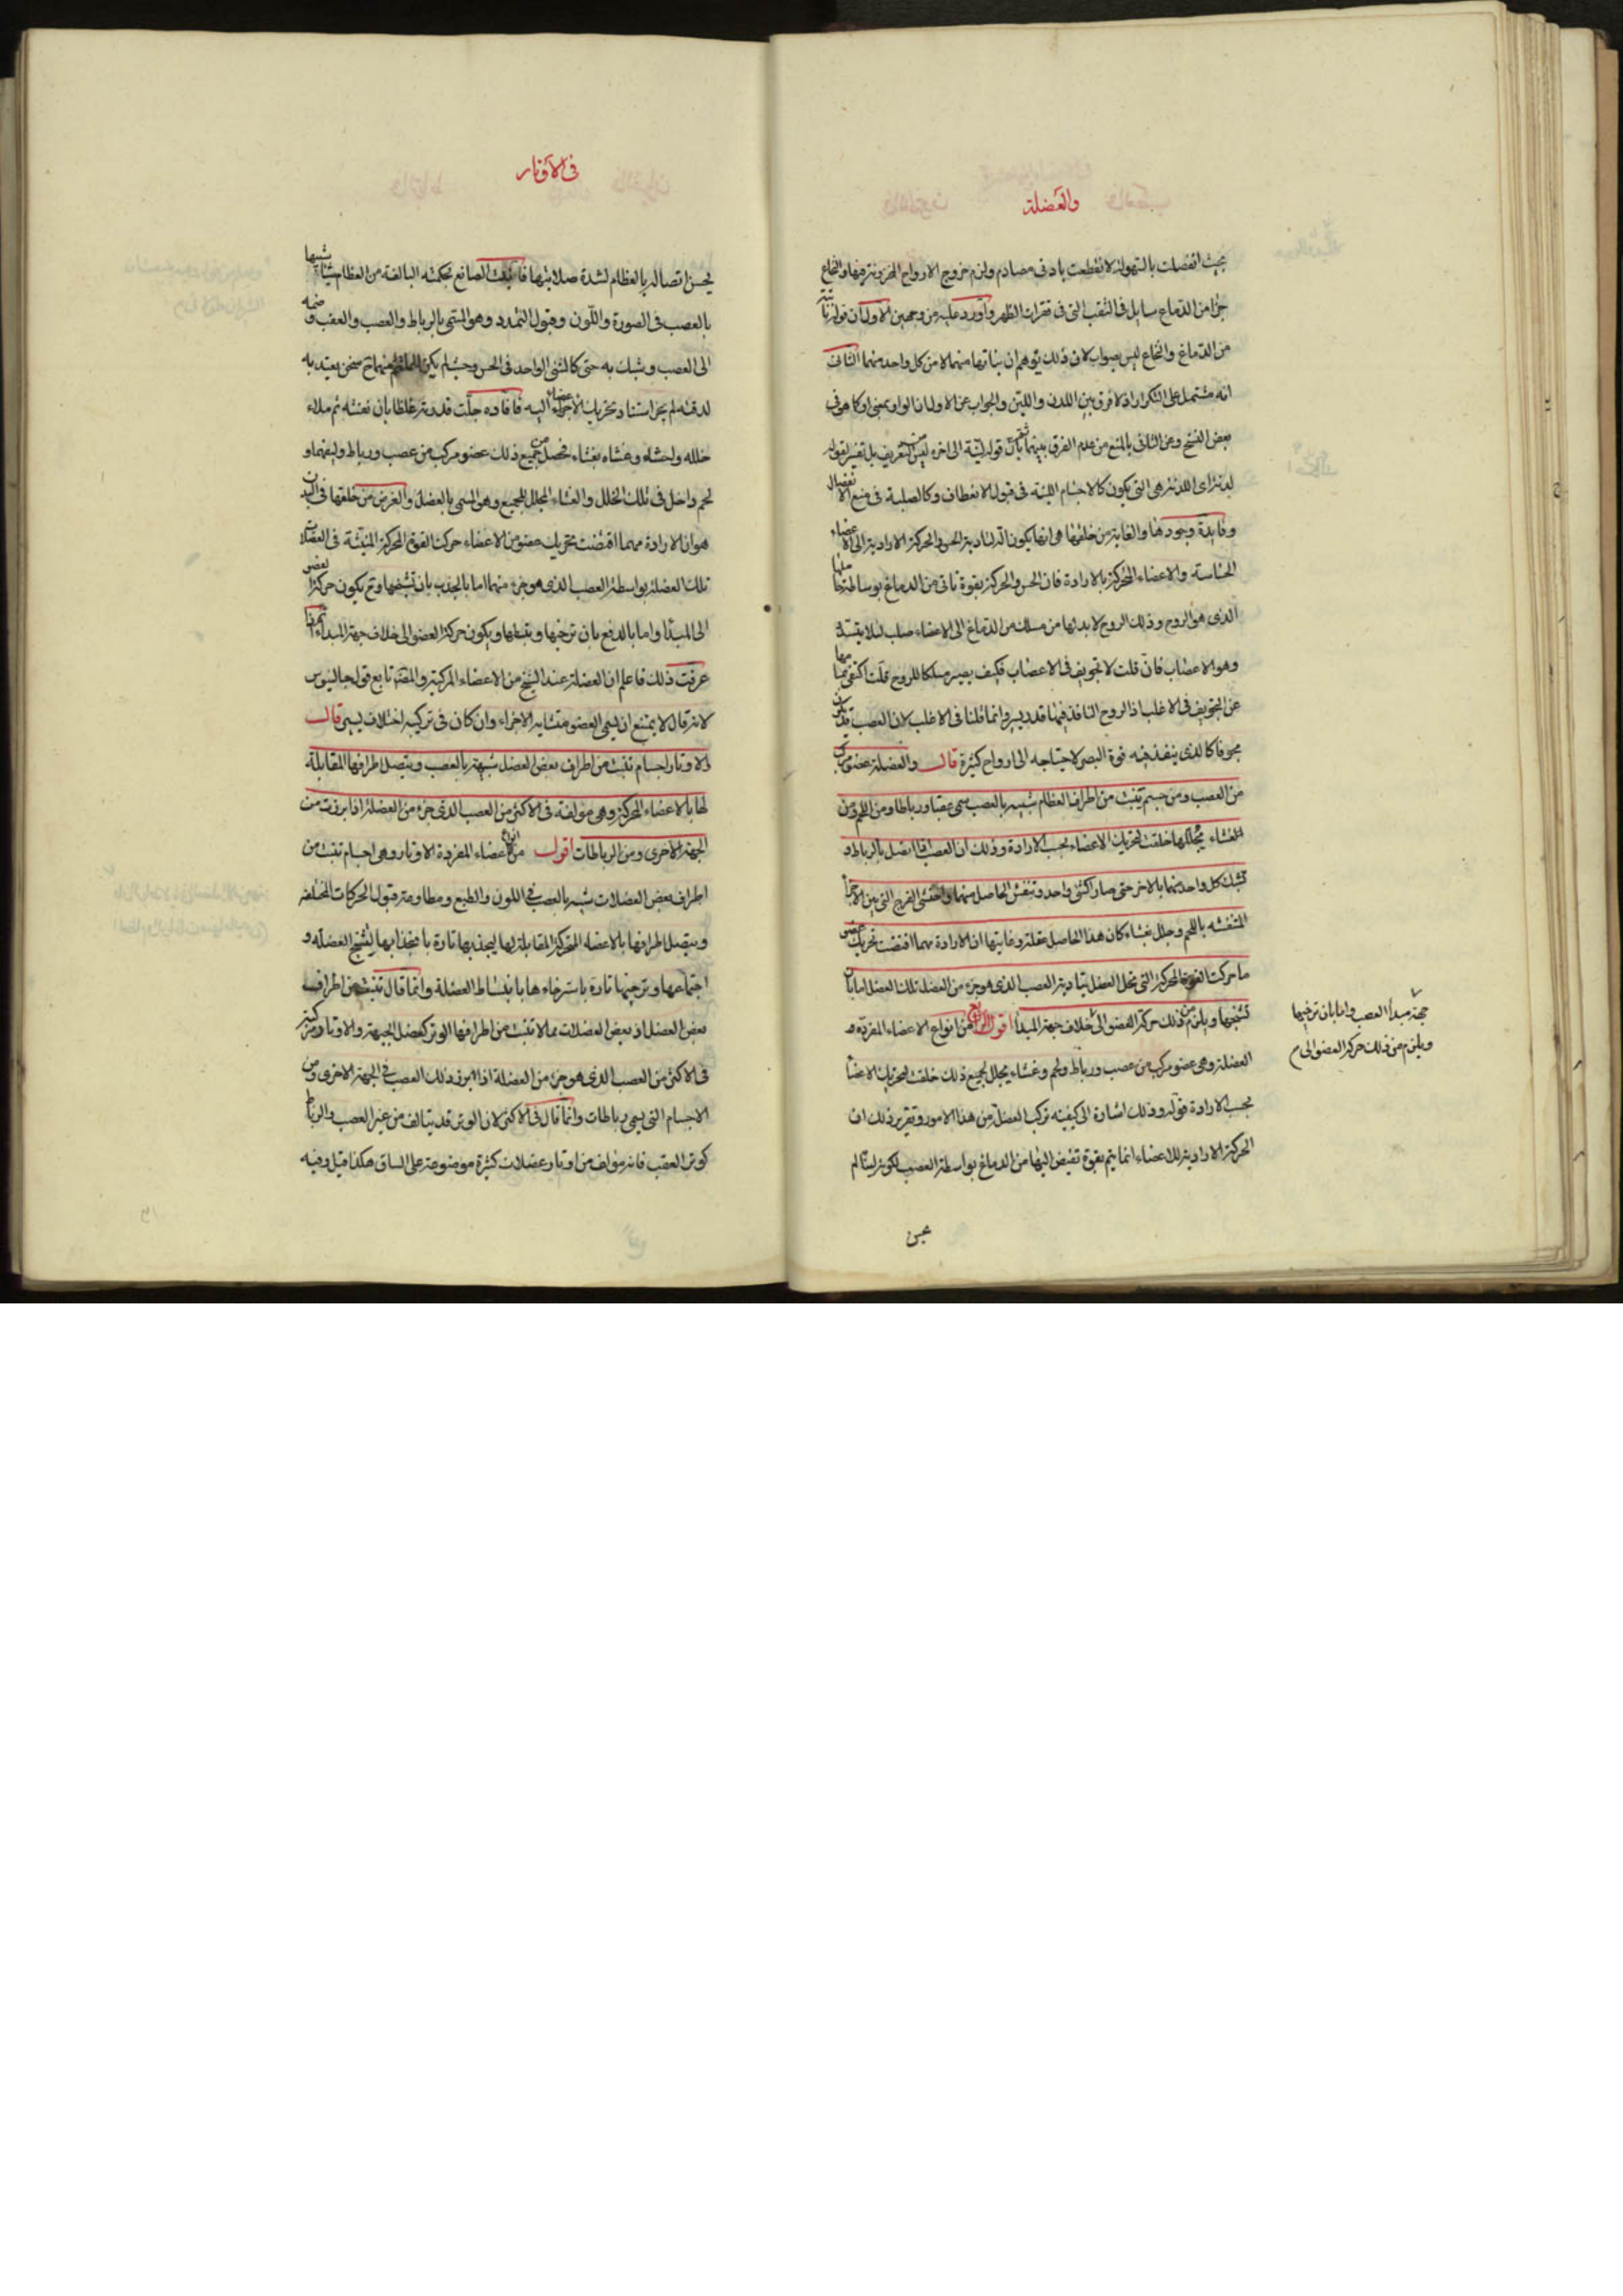 والعضلة
بحيث انفصلت بالسهولة لانقطعت بادنى مصادم ولزم خروج الارواح المخزونة فيها والنخاع
جزء من الدماغ سايل فى الثقب التى فى فقرات الظهر واورد عليه من وجهين الاول ان قوله نابتة
من الدماغ والنخاع ليس بصواب لان ذلك يوهم ان نباتها منهما لا من كل واحد منهما الثانى
انه مشتمل على التكرار اذ لا فرق بين اللدن واللين والجواب عن الاول ان الواو بمعنى او كما هو فى
بعض النسخ وعن الثانى بالمنع من عدم الفرق بينهما بان قوله لينة الى اخره ليس من التعريف بل تفسير لقوله
لدنة اى اللدنة هى التى يكون كالاجسام اللينة فى قبول الانعطاف وكالصلبة فى منع الانفصال
وفايدة وجودها والغاية من خلقتها هى انها يكون الة لتادية الحس والحركة الارادية الى الاعضاء
الحساسة والاعضاء المتحركة بالارادة فان الحس والحركة بقوة تاتى من الدماغ بوساطة حاملها
الذى هو الروح وذلك الروح لا بد لها من مسلك من الدماغ الى الاعضاء صلب لئلا ينسد
وهو الاعصاب فان قلت لا تجويف فى الاعصاب فكيف يصير مسلكا للروح قلت اكتفى فيها
عن التجويف فى الاغلب اذ الروح النافذ فيها قدر يسير وانما قلنا فى الاغلب لان العصب قد يكون
مجوفا كالذى ينفذ فيه قوة البصر لاحتياجه الى ارواح كثيرة قال والعضلة عضو مركب
من العصب ومن جسم تنبت من اطراف العظام شبيه بالعصب يسمى عقبا ورباطا ومن اللحم ومن
الغشاء يجللها خلقت لتحريك الاعضاء بحسب الارادة وذلك ان العصب اذا اتصل بالرباط و
تشبك كل واحد منهما بالاخر حتى صار كشئ واحد وتنفش الحاصل منهما واحتشى الفرج التى بين الاجزاء
المتنفشه باللحم وجلل بغشاء كان هذا الحاصل عضلة وغايتها ان الارادة مهما اقتضت تحريك عضو
ما حركت القوة المحركة التى تحل العضل بتادية العصب الذى هو جزء من العضل تلك العضل اما بان
تشنجها ويلزم من ذلك حركة العضو الى خلاف جهة المبدأ اقول الرابع من انواع الاعضاء المفردة هو
العضلة وهى عضو مركب من عصب ورباط ولحم وغشاء يجلل لجميع ذلك خلقت لتحريك الاعضا
بحسب الارادة قوله وذلك اشارة الى كيفية تركب العضلة من هذا الامور وتقرير ذلك ان
الحركة الارادية للاعضاء انما يتم بقوة تفيض اليها من الدماغ بواسطة العصب لكونه لينا لم
جهة مبدأ العصب واما بان ترخيها
ويلزم من ذلك حركة العضو الى م
يحسن
فى الاوتار
يحسن اتصاله بالعظام لشدة صلابتها فانبت الصانع بحكمته البالغة من العظام شيئا شبيها
بالعصب فى الصورة واللون وقبول التمدد وهو المسمى بالرباط والعصب والعقب وضمه
الى العصب وشبك به حتى كالشئ الواحد فى الحس وحينئذ لم يكن للملتئم منهما ح سخن يعتد به
لدقته لم يجز استناد تحريك الاعضاء اليه فافاده جلت قدرته غلظا بان نفشه ثم ملاء
خلله ولحشاه وغشاه بغشاء فحصل من جميع ذلك عضو مركب من عصب ورباط وليفهما و
لحم داخل فى تلك الخلل والغشاء المجلل للجميع وهو المسمى بالعضلة والغرض من خلقتها فى البدن
هو ان الارادة مهما اقتضت تحريك عضو من الاعضاء حركت القوة المحركة المنبثة فى العضلات
تلك العضلة بواسطة العصب الذى هو جزء منها اما بالجذب بان تشنجها وح يكون حركة العضو
الى المبدأ واما بالدفع بان ترخيها وتبسطها ويكون حركة العضو الى خلاف جهة المبدأ
عرفت ذلك فاعلم ان العضلة عند الشيخ من الاعضاء المركبة والمصنف تابع قول جالينوس
لانه قال لا يمتنع ان يسمى العضو متشابه الاجزاء وان كان فى تركيبه اختلاف يسير قال
والاوتار اجسام تنبت من اطراف بعض العضل شبيهة بالعصب ويتصل اطرافها المقابلة
لها بالاعضاء المحركة وهى مولفة فى الاكثر من العصب الذى جزء من العضلة اذا برزت من
الجهة الاخرى ومن الرباطات اقول من انواع الاعضاء المفردة الاوتار وهى اجسام تنبت من
اطراف بعض العضلات شبيه بالعصب فى اللون والطبع ومطاوعة قبول الحركات المختلفه
ويتصل اطرافها بالاعضاء المتحركة المقابلة لها ليجذبها تارة بانجذابها لتشنج العضلة و
اجتماعها وترخيها تارة باسترخاءها بانبساط العضلة وانما قال تنبت من اطراف
بعض العضل اذ بعض العضلات مما لا تنبت من اطرافها الوتر كعضل الجبهة والاوتار مركبة
فى الاكثر من العصب الذى هو جزء من العضلة اذا برز ذلك العصب فى الجهة الاخرى ومن
الاجسام التى يسمى رباطات وانما قال فى الاكثر لان الوتر قد يتالف من غير العصب والرباط
كوتر العقب فانه مؤلف من اوتار عضلات كثيرة موضوعة على الساق هكذا قيل وفيه